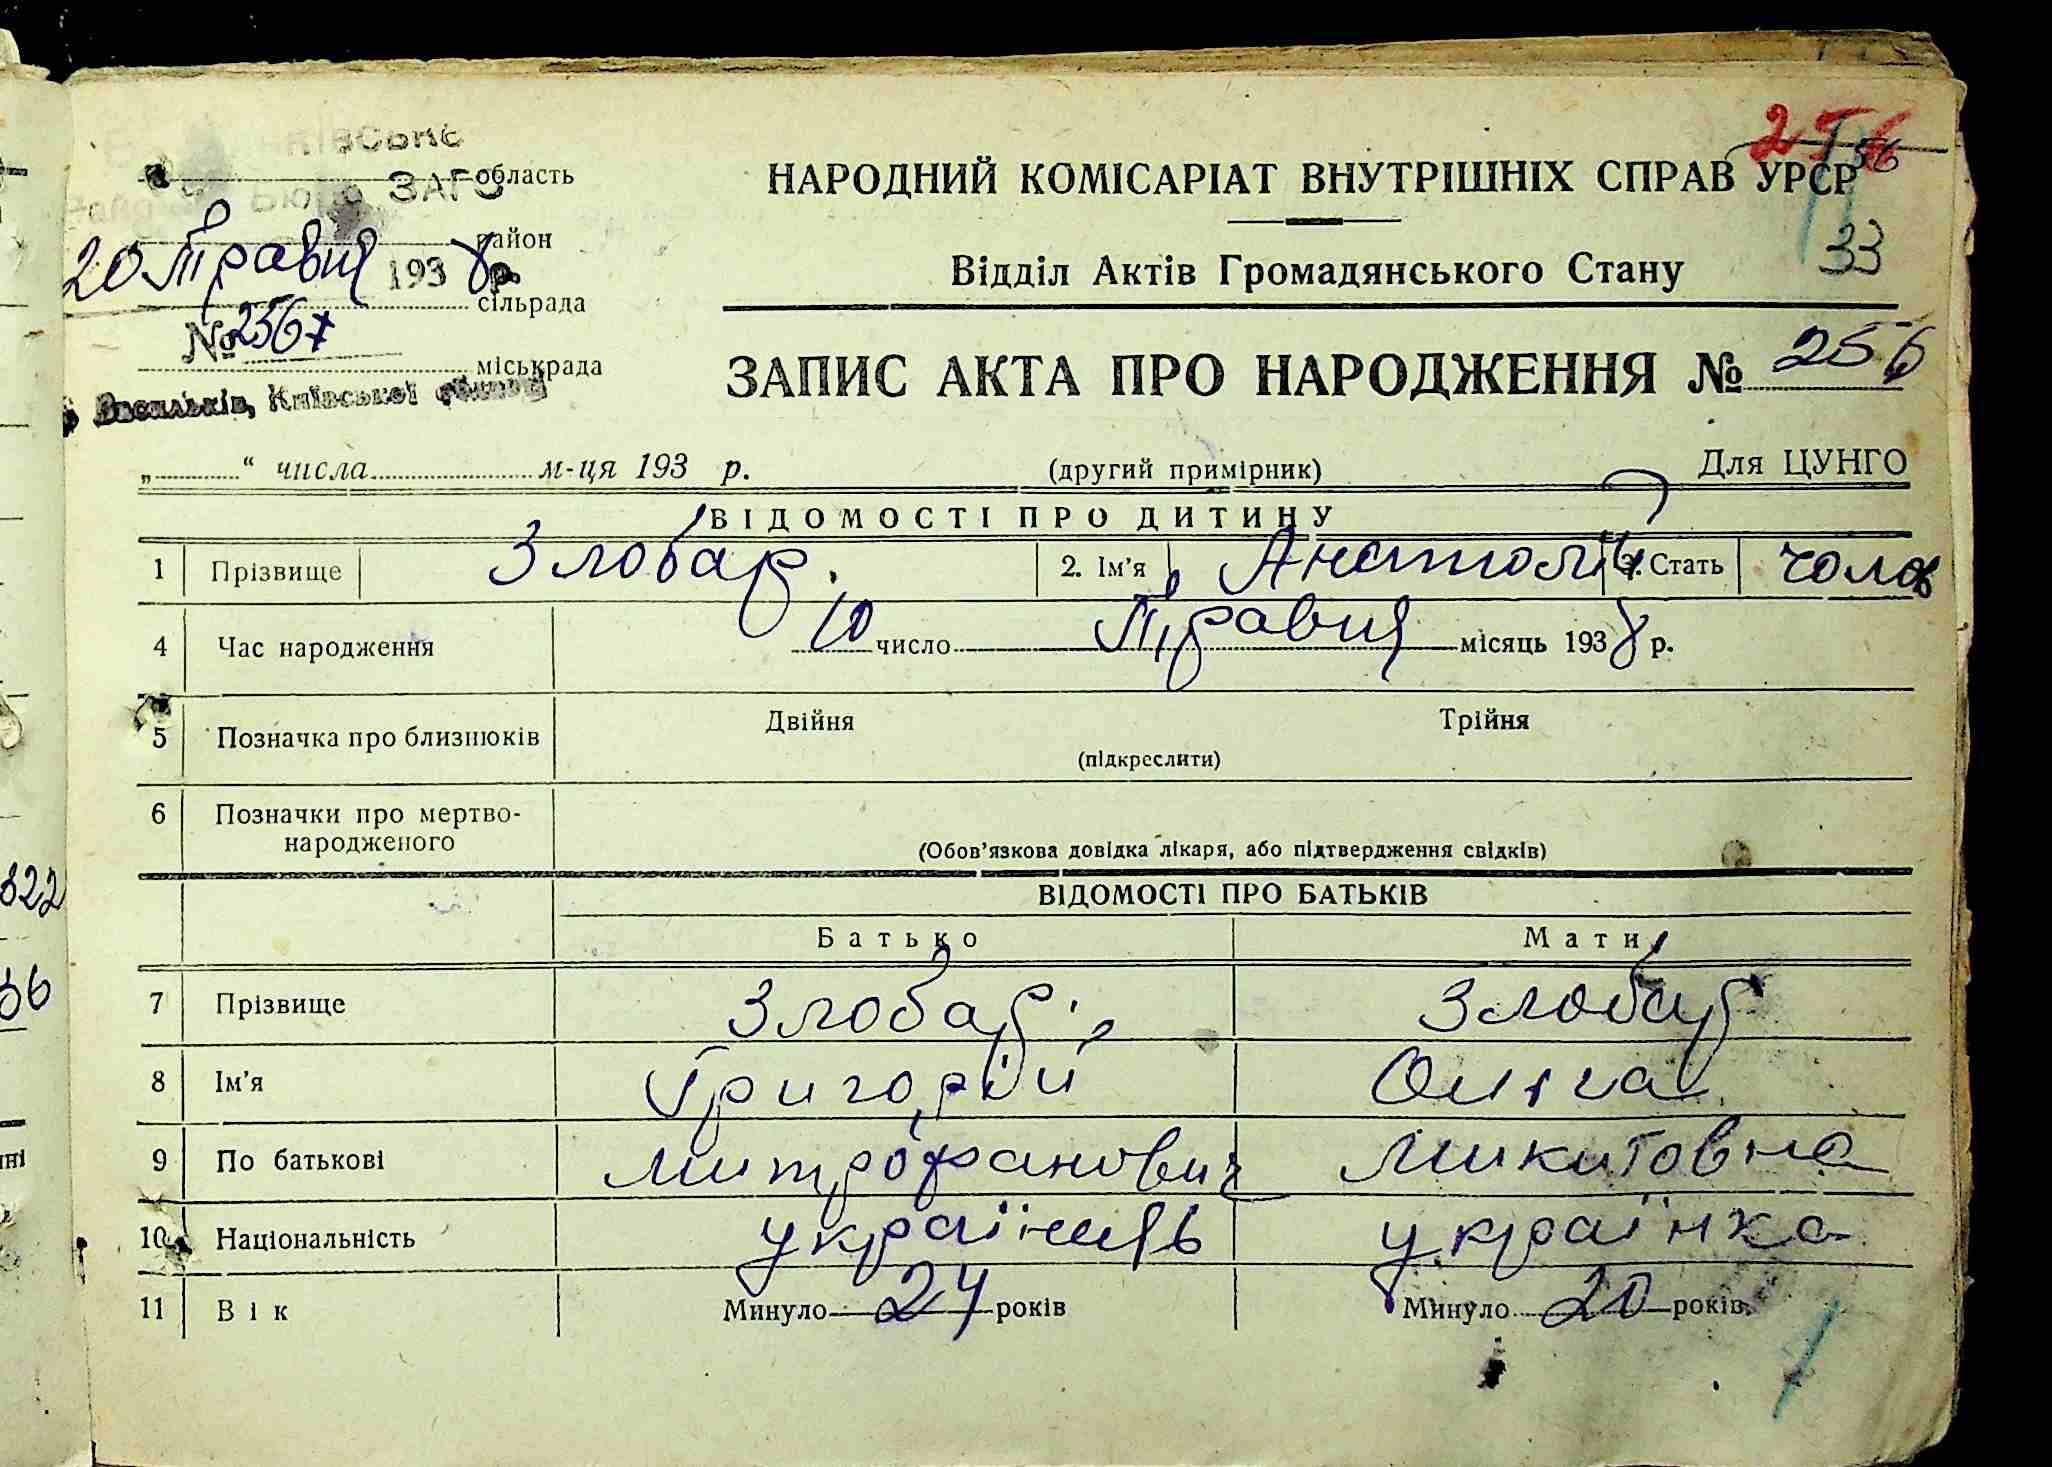 область
Бюро ЗАГС
район
20 Травня 1938 р.
сільрада
№ 256
міськрада
Васильків, Київської області
„ “ числа м-ця 193 р.
256
33
НАРОДНИЙ КОМІСАРІАТ ВНУТРІШНІХ СПРАВ УРСР
Відділ Актів Громадянського Стану
ЗАПИС АКТА ПРО НАРОДЖЕННЯ № 256
(другий примірник)
Для ЦУНГО
ВІДОМОСТІ ПРО ДИТИНУ
1 Прізвище Злобар. 2. Ім'я Анатолій 3. Стать чолов
4 Час народження 10 число Травня місяць 1938 р.
5 Позначка про близнюків Двійня Трійня
(підкреслити)
6 Позначки про мертво-
народженого
(Обов'язкова довідка лікаря, або підтвердження свідків)
ВІДОМОСТІ ПРО БАТЬКІВ
Батько Мати
7 Прізвище Злобар Злобар
8 Ім'я Григорій Ольга
9 По батькові Митрофанович Микитовна
10 Національність українець українка
11 Вік Минуло 24 років Минуло 20 років